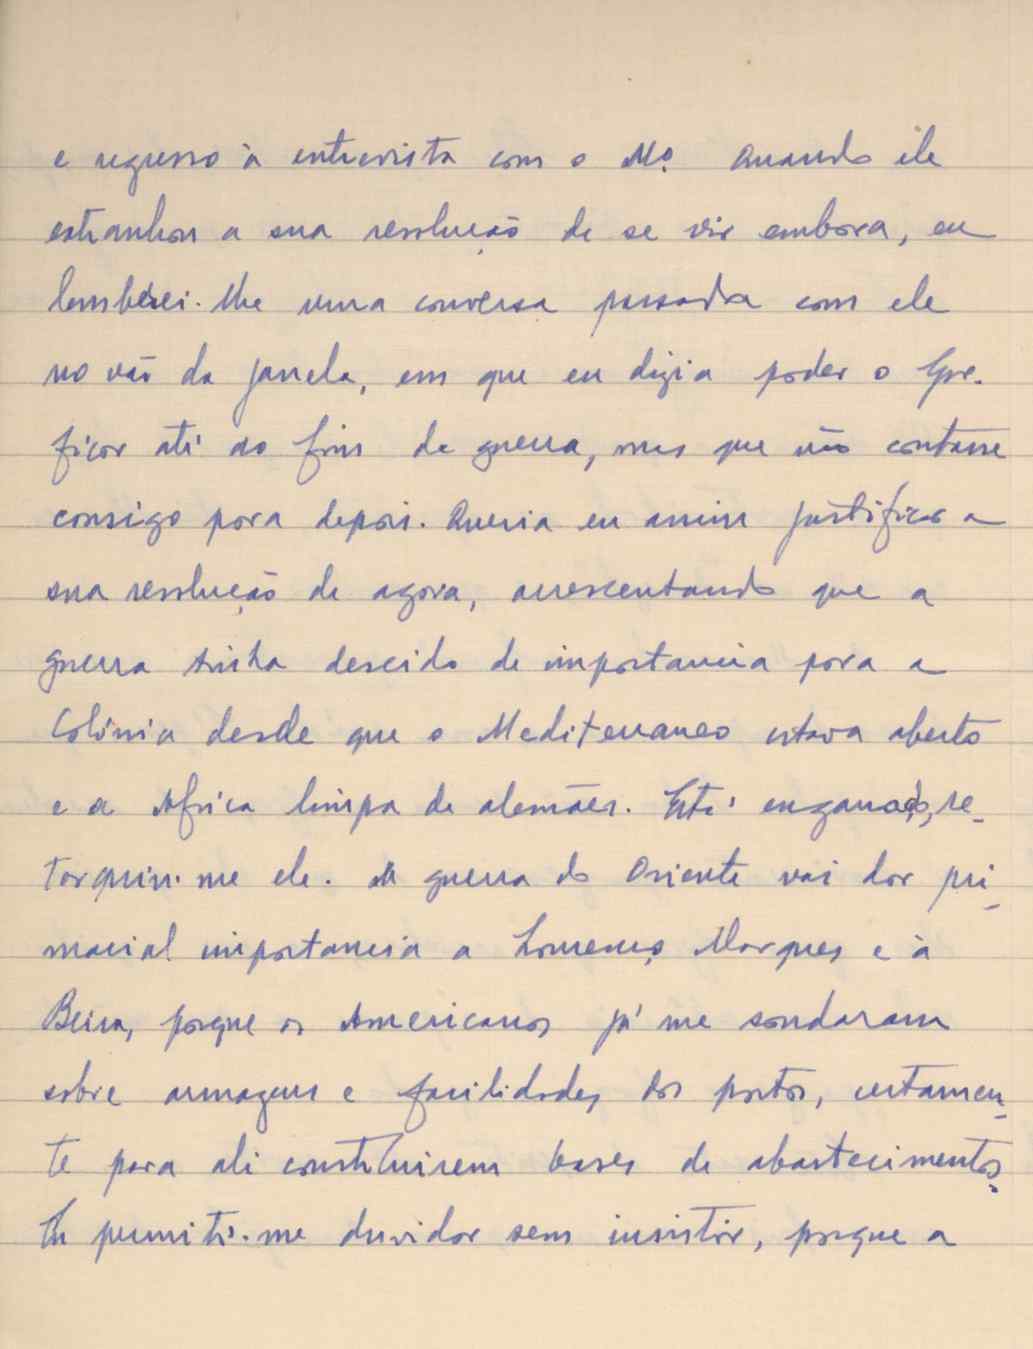 e regresso à entrevista com o Mº. Quando ele
estranhou a sua resolução de se vir embora, eu
lembrei-lhe uma conversa passada com ele
no vão da janela, em que eu dizia poder o Gov.
ficar até ao fim da guerra, mas que não contasse
consigo para depois. Queria eu assim justificar a
sua resolução de agora, acrescentando que a
guerra tinha descido de importancia para a
Colónia desde que o Mediterraneo estava aberto
e a Africa limpa de alemães. Está enganado, re-
torquiu-me ele. A guerra do Oriente vai dar pri-
macial importancia a Lourenço Marques e à
Beira, porque os Americanos já me sondaram
sobre armagens e facilidades dos portos, certamen-
te para ali construirem bases de abastecimentos.
Eu permiti-me duvidar sem insistir, porque a